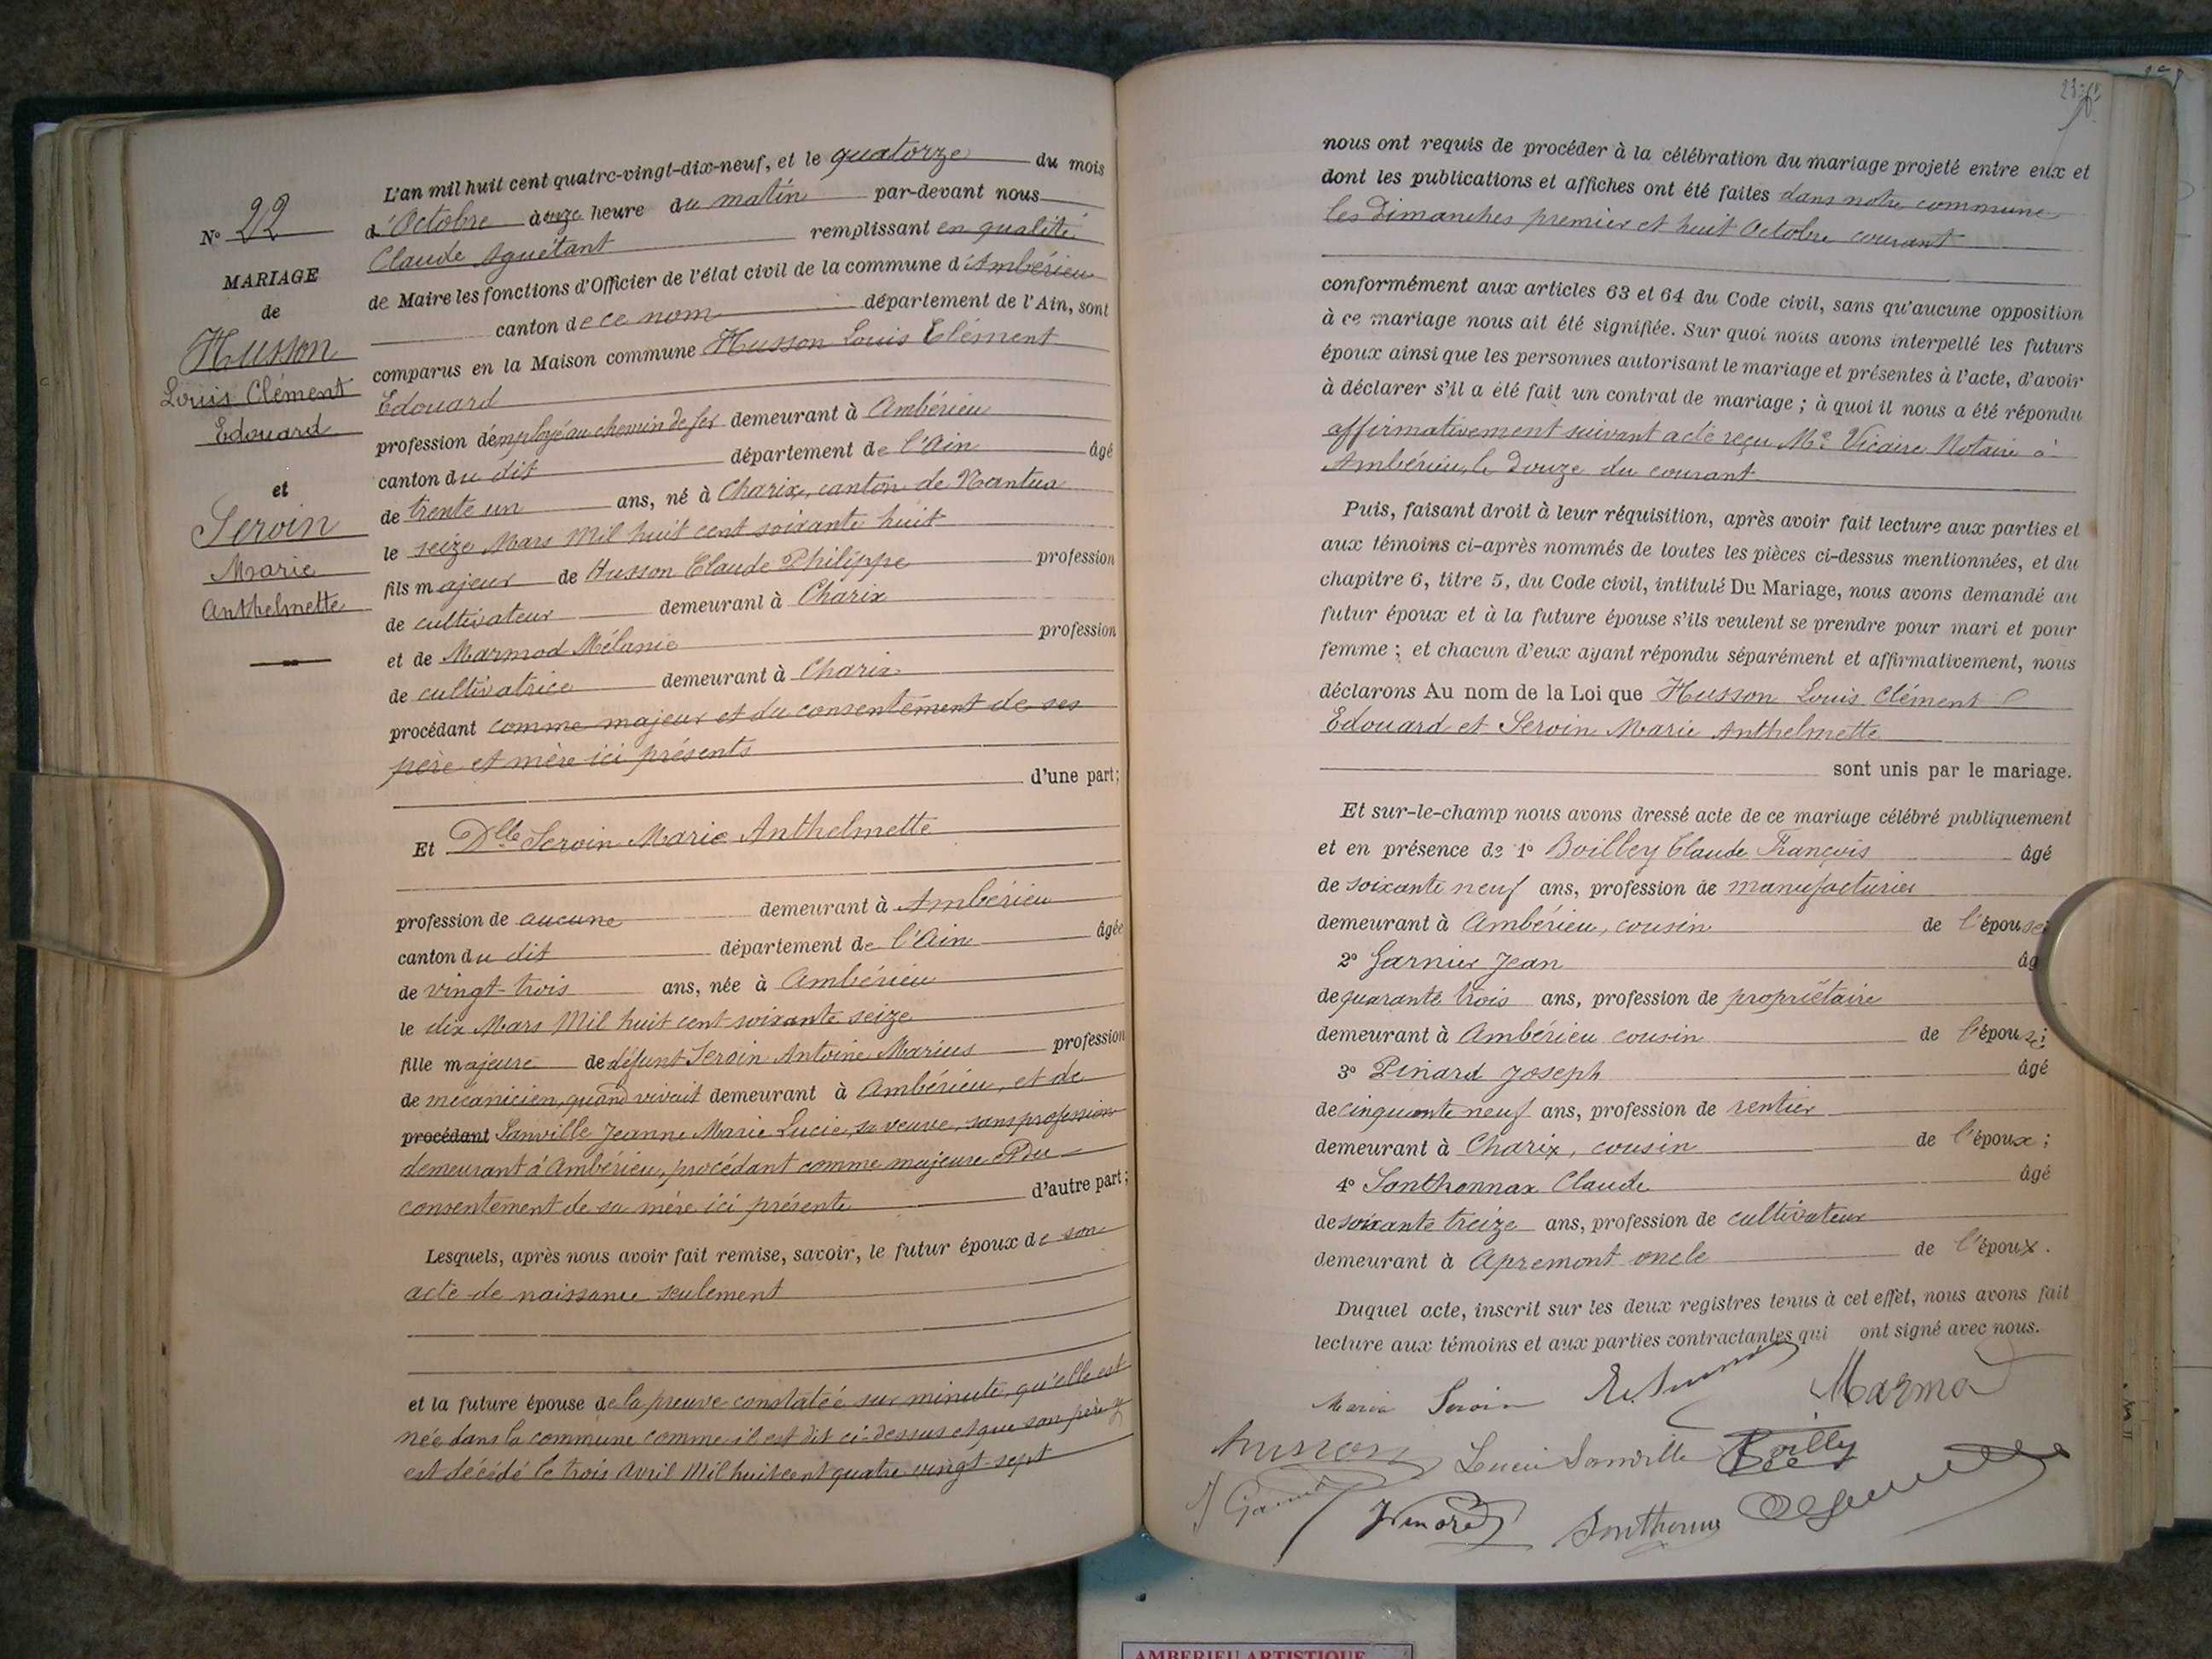 N° 22
MARIAGE
de
Husson
Louis Clément
Edouard
et
Servin
Marie
Anthelmette
L'an mil huit cent quatre-vingt-dix-neuf, et le quatorze du mois
d'Octobre à onze heure du matin par-devant nous
Claude Aguétant remplissant en qualité
de Maire les fonctions d'Officier de l'état civil de la commune d'Ambérieu
canton de ce nom département de l'Ain, sont
comparus en la Maison commune Husson Louis Clément
Edouard
profession d'employé au chemin de fer demeurant à Ambérieu
canton du dit département de l'Ain âgé
de trente un ans, né à Charix, canton de Nantua
le seize Mars Mil huit cent soixante huit
fils majeur de Husson Claude Philippe profession
de cultivateur demeurant à Charix
et de Marmod Mélanie profession
de cultivatrice demeurant à Charix
procédant comme majeur et du consentement de ses
père et mère ici présents
d'une part;
Et Dlle Servin Marie Anthelmette
profession de aucune demeurant à Ambérieu
canton du dit département de l'Ain âgée
de vingt-trois ans, née à Ambérieu
le dix Mars Mil huit cent soixante seize
fille majeure de défunt Servin Antoine Marius profession
de mécanicien, quand vivait demeurant à Ambérieu, et de
procédant Sanville Jeanne Marie Lucie, sa veuve, sans profession
demeurant à Ambérieu, procédant comme majeure et du
consentement de sa mère ici présente d'autre part;
Lesquels, après nous avoir fait remise, savoir, le futur époux de son
acte de naissance seulement
et la future épouse de la preuve constatée sur minute, qu'elle est
née dans la commune comme il est dit ci-dessus et que son père y
est décédé le trois Avril Mil huit cent quatre vingt-sept
nous ont requis de procéder à la célébration du mariage projeté entre eux et
dont les publications et affiches ont été faites dans notre commune
les Dimanches premier et huit Octobre courant
conformément aux articles 63 et 64 du Code civil, sans qu'aucune opposition
à ce mariage nous ait été signifiée. Sur quoi nous avons interpellé les futurs
époux ainsi que les personnes autorisant le mariage et présentes à l'acte, d'avoir
à déclarer s'il a été fait un contrat de mariage ; à quoi il nous a été répondu
affirmativement suivant acte reçu Me Vicaire Notaire à
Ambérieu, le douze du courant
Puis, faisant droit à leur réquisition, après avoir fait lecture aux parties et
aux témoins ci-après nommés de toutes les pièces ci-dessus mentionnées, et du
chapitre 6, titre 5, du Code civil, intitulé Du Mariage, nous avons demandé au
futur époux et à la future épouse s'ils veulent se prendre pour mari et pour
femme ; et chacun d'eux ayant répondu séparément et affirmativement, nous
déclarons Au nom de la Loi que Husson Louis Clément
Edouard et Servin Marie Anthelmette
sont unis par le mariage.
Et sur-le-champ nous avons dressé acte de ce mariage célébré publiquement
et en présence de 1° Boilley Claude François âgé
de soixante neuf ans, profession de manufacturier
demeurant à Ambérieu, cousin de l'épouse;
2° Garnier Jean âg
de quarante trois ans, profession de propriétaire
demeurant à Ambérieu cousin de l'épouse;
3° Pinard Joseph âgé
de cinquante neuf ans, profession de rentier
demeurant à Charix, cousin de l'époux ;
4° Sonthonnax Claude âgé
de soixante treize ans, profession de cultivateur
demeurant à Apremont oncle de l'époux.
Duquel acte, inscrit sur les deux registres tenus à cet effet, nous avons fait
lecture aux témoins et aux parties contractantes qui ont signé avec nous.
Marie Servin Marmod
husson Lucie Sanville Boilley
AMBERIEU ARTISTIQUE